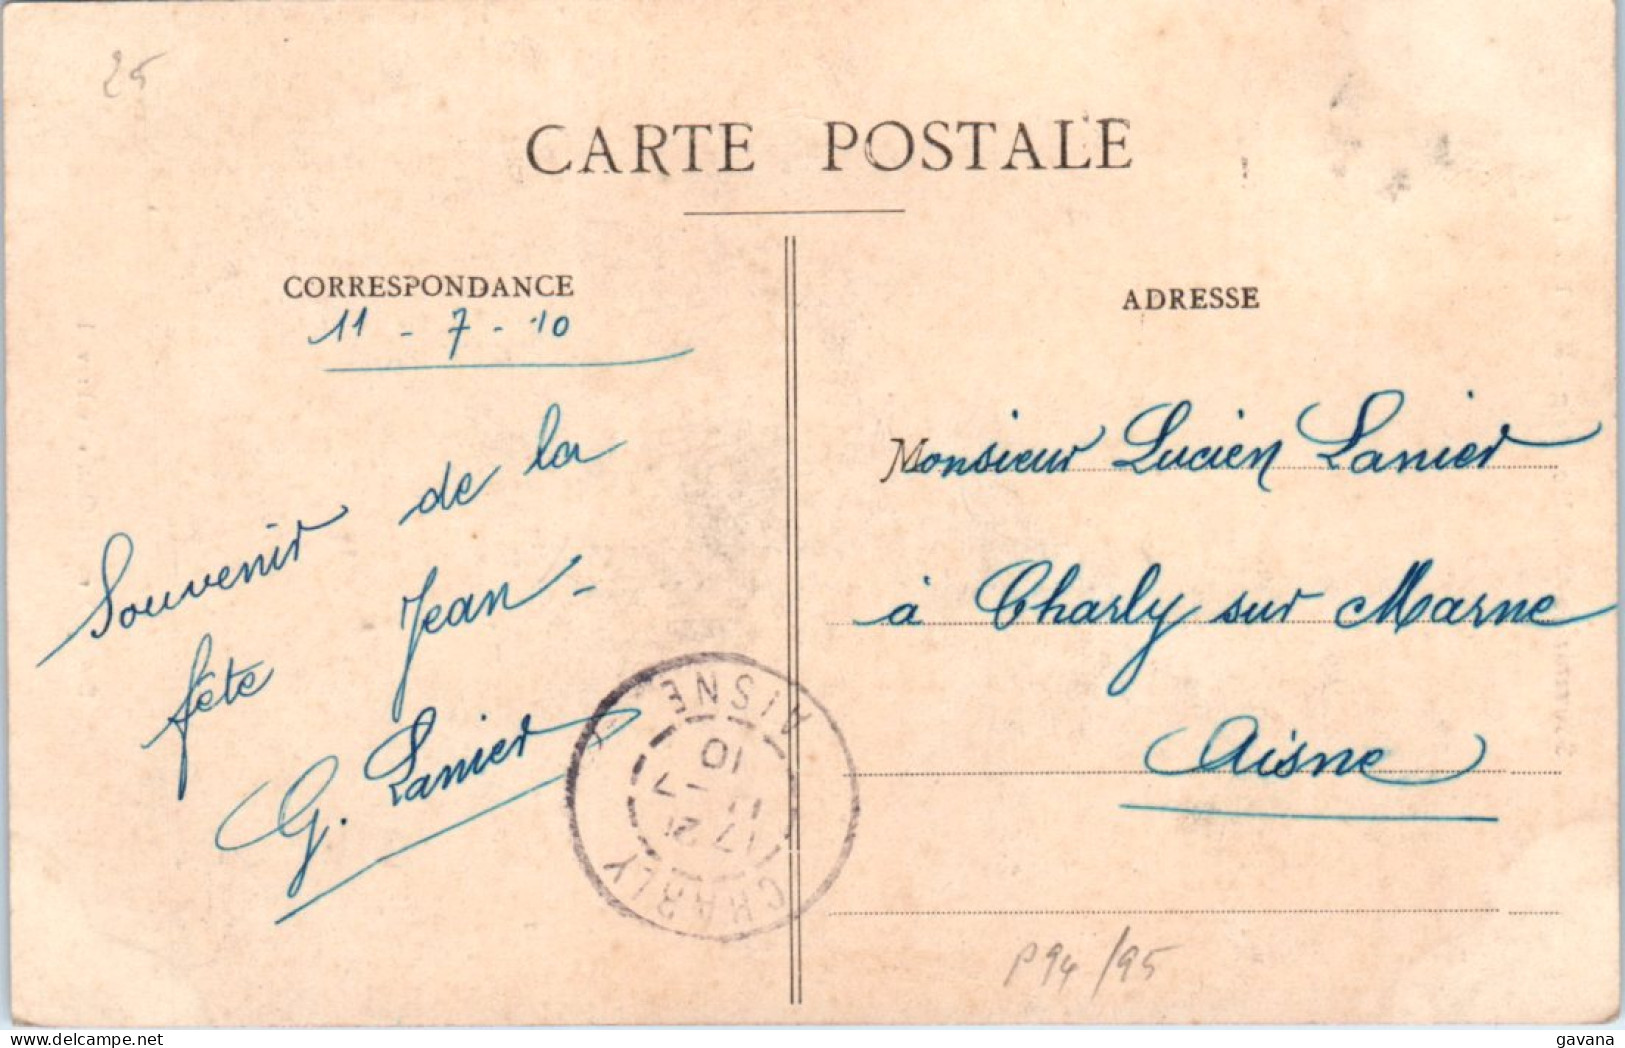 25
CARTE POSTALE
CORRESPONDANCE
11 - 7 - 10
Souvenir de la
fête Jean -
G. Lanier
ADRESSE
Monsieur Lucien Lanier
à Charly sur Marne
Aisne
CHARLY
AISNE
17
11 - 7
10
P94/95
gavana